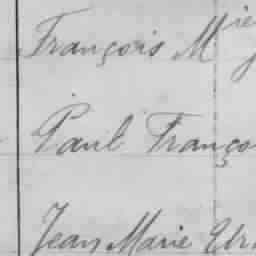 François M ie
Paul Franço
Jean Marie